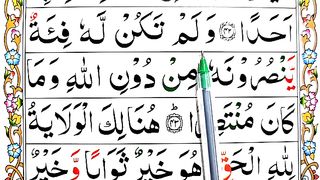 اَحَدًا ﴿۴۲﴾ وَلَمْ تَكُنْ لَّهٗ فِئَةٌ
يَّنْصُرُوْنَهٗ مِنْ دُوْنِ اللّٰهِ وَمَا
كَانَ مُنْتَصِرًا ؕ﴿۴۳﴾ هُنَالِكَ الْوَلَايَةُ
لِلّٰهِ الْحَقِّ ؕ هُوَ خَيْرٌ ثَوَابًا وَّخَيْرٌ